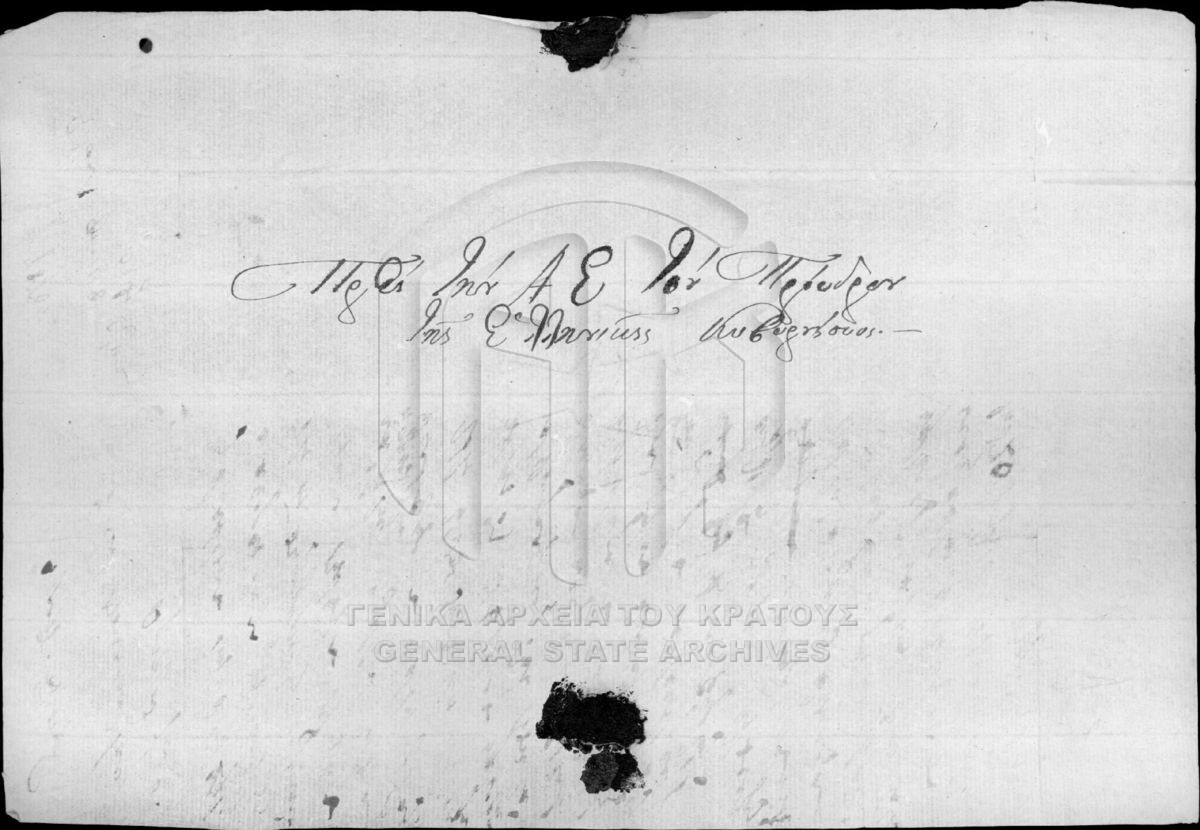 Πρὸς τὴν Α Ε τὸν Πρόεδρον
τῆς Ἑλληνικῆς Κυβερνήσεως. —
ΓΕΝΙΚΑ ΑΡΧΕΙΑ ΤΟΥ ΚΡΑΤΟΥΣ
GENERAL STATE ARCHIVES